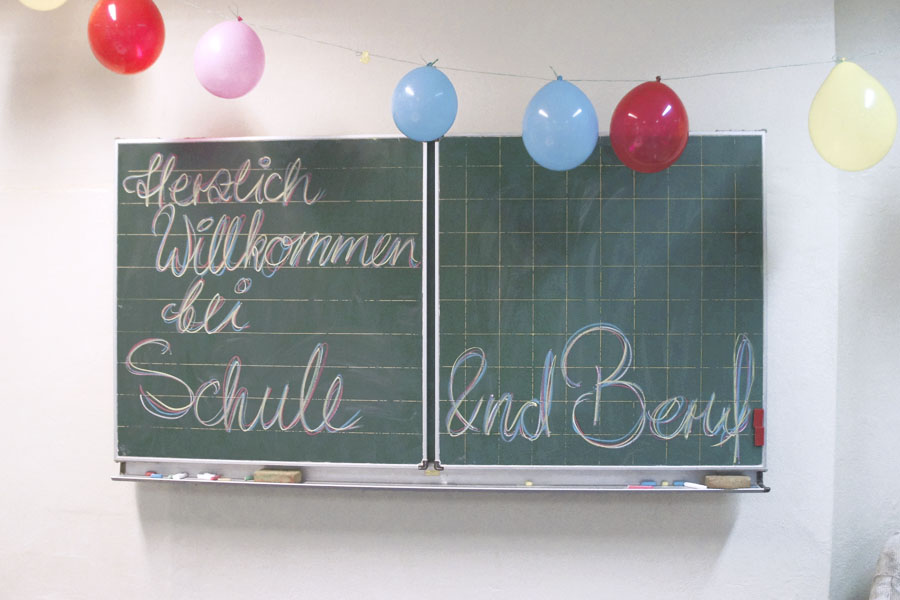 Herzlich
Willkommen
bei
Schule und Beruf